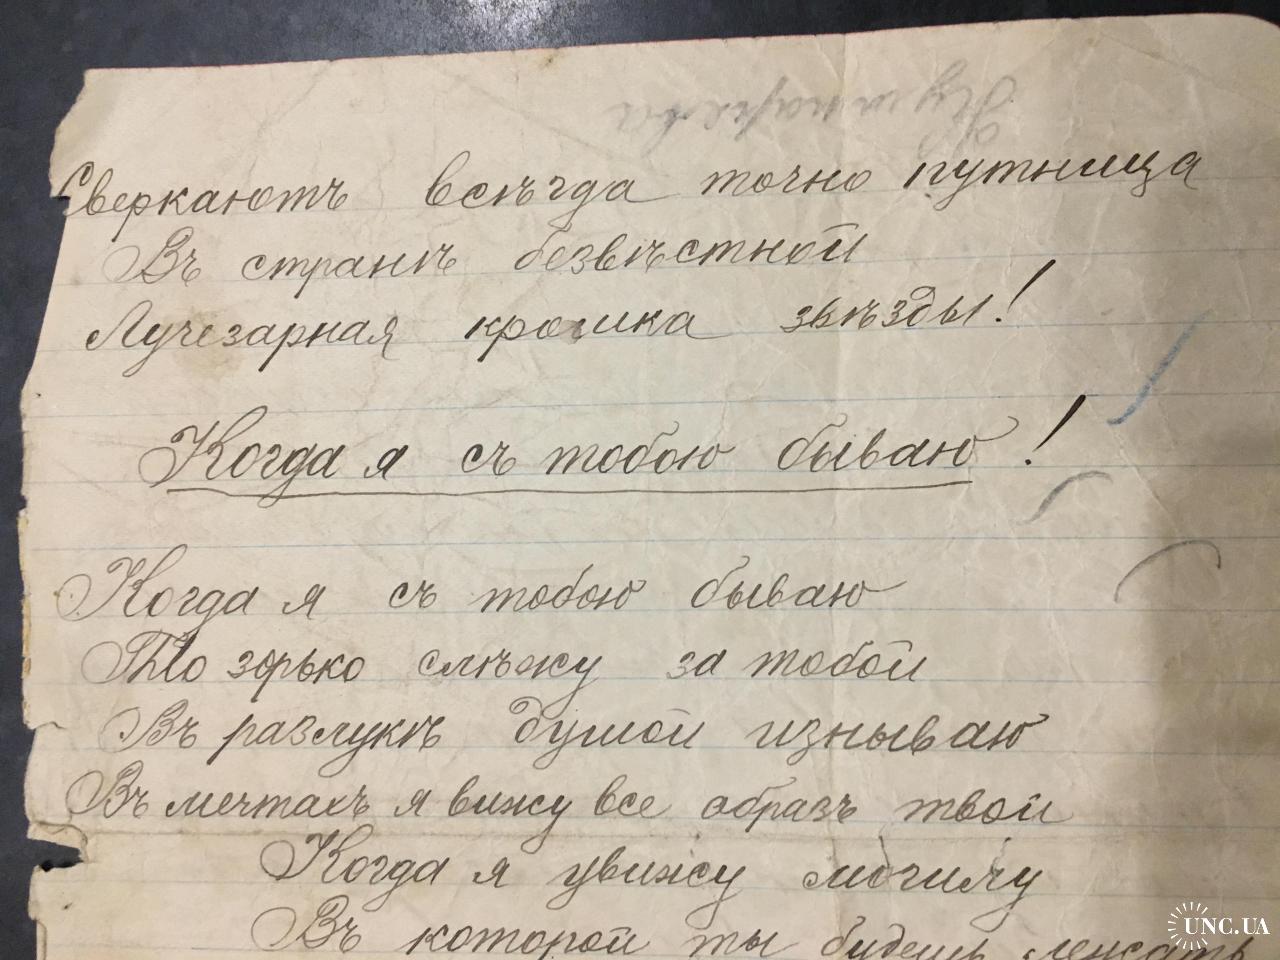 Сверкаютъ всѣгда точно путница
Въ странѣ безвѣстной
Лучезарная крошка звѣзды!
Когда я съ тобою бываю!
Когда я съ тобою бываю
То зорько слѣжу за тобой
Въ разлукѣ думой изнываю
Въ мечтахъ я вижу все образъ твой
Когда я увижу могилу
Въ которой ты будешь лежать
UNC.UA